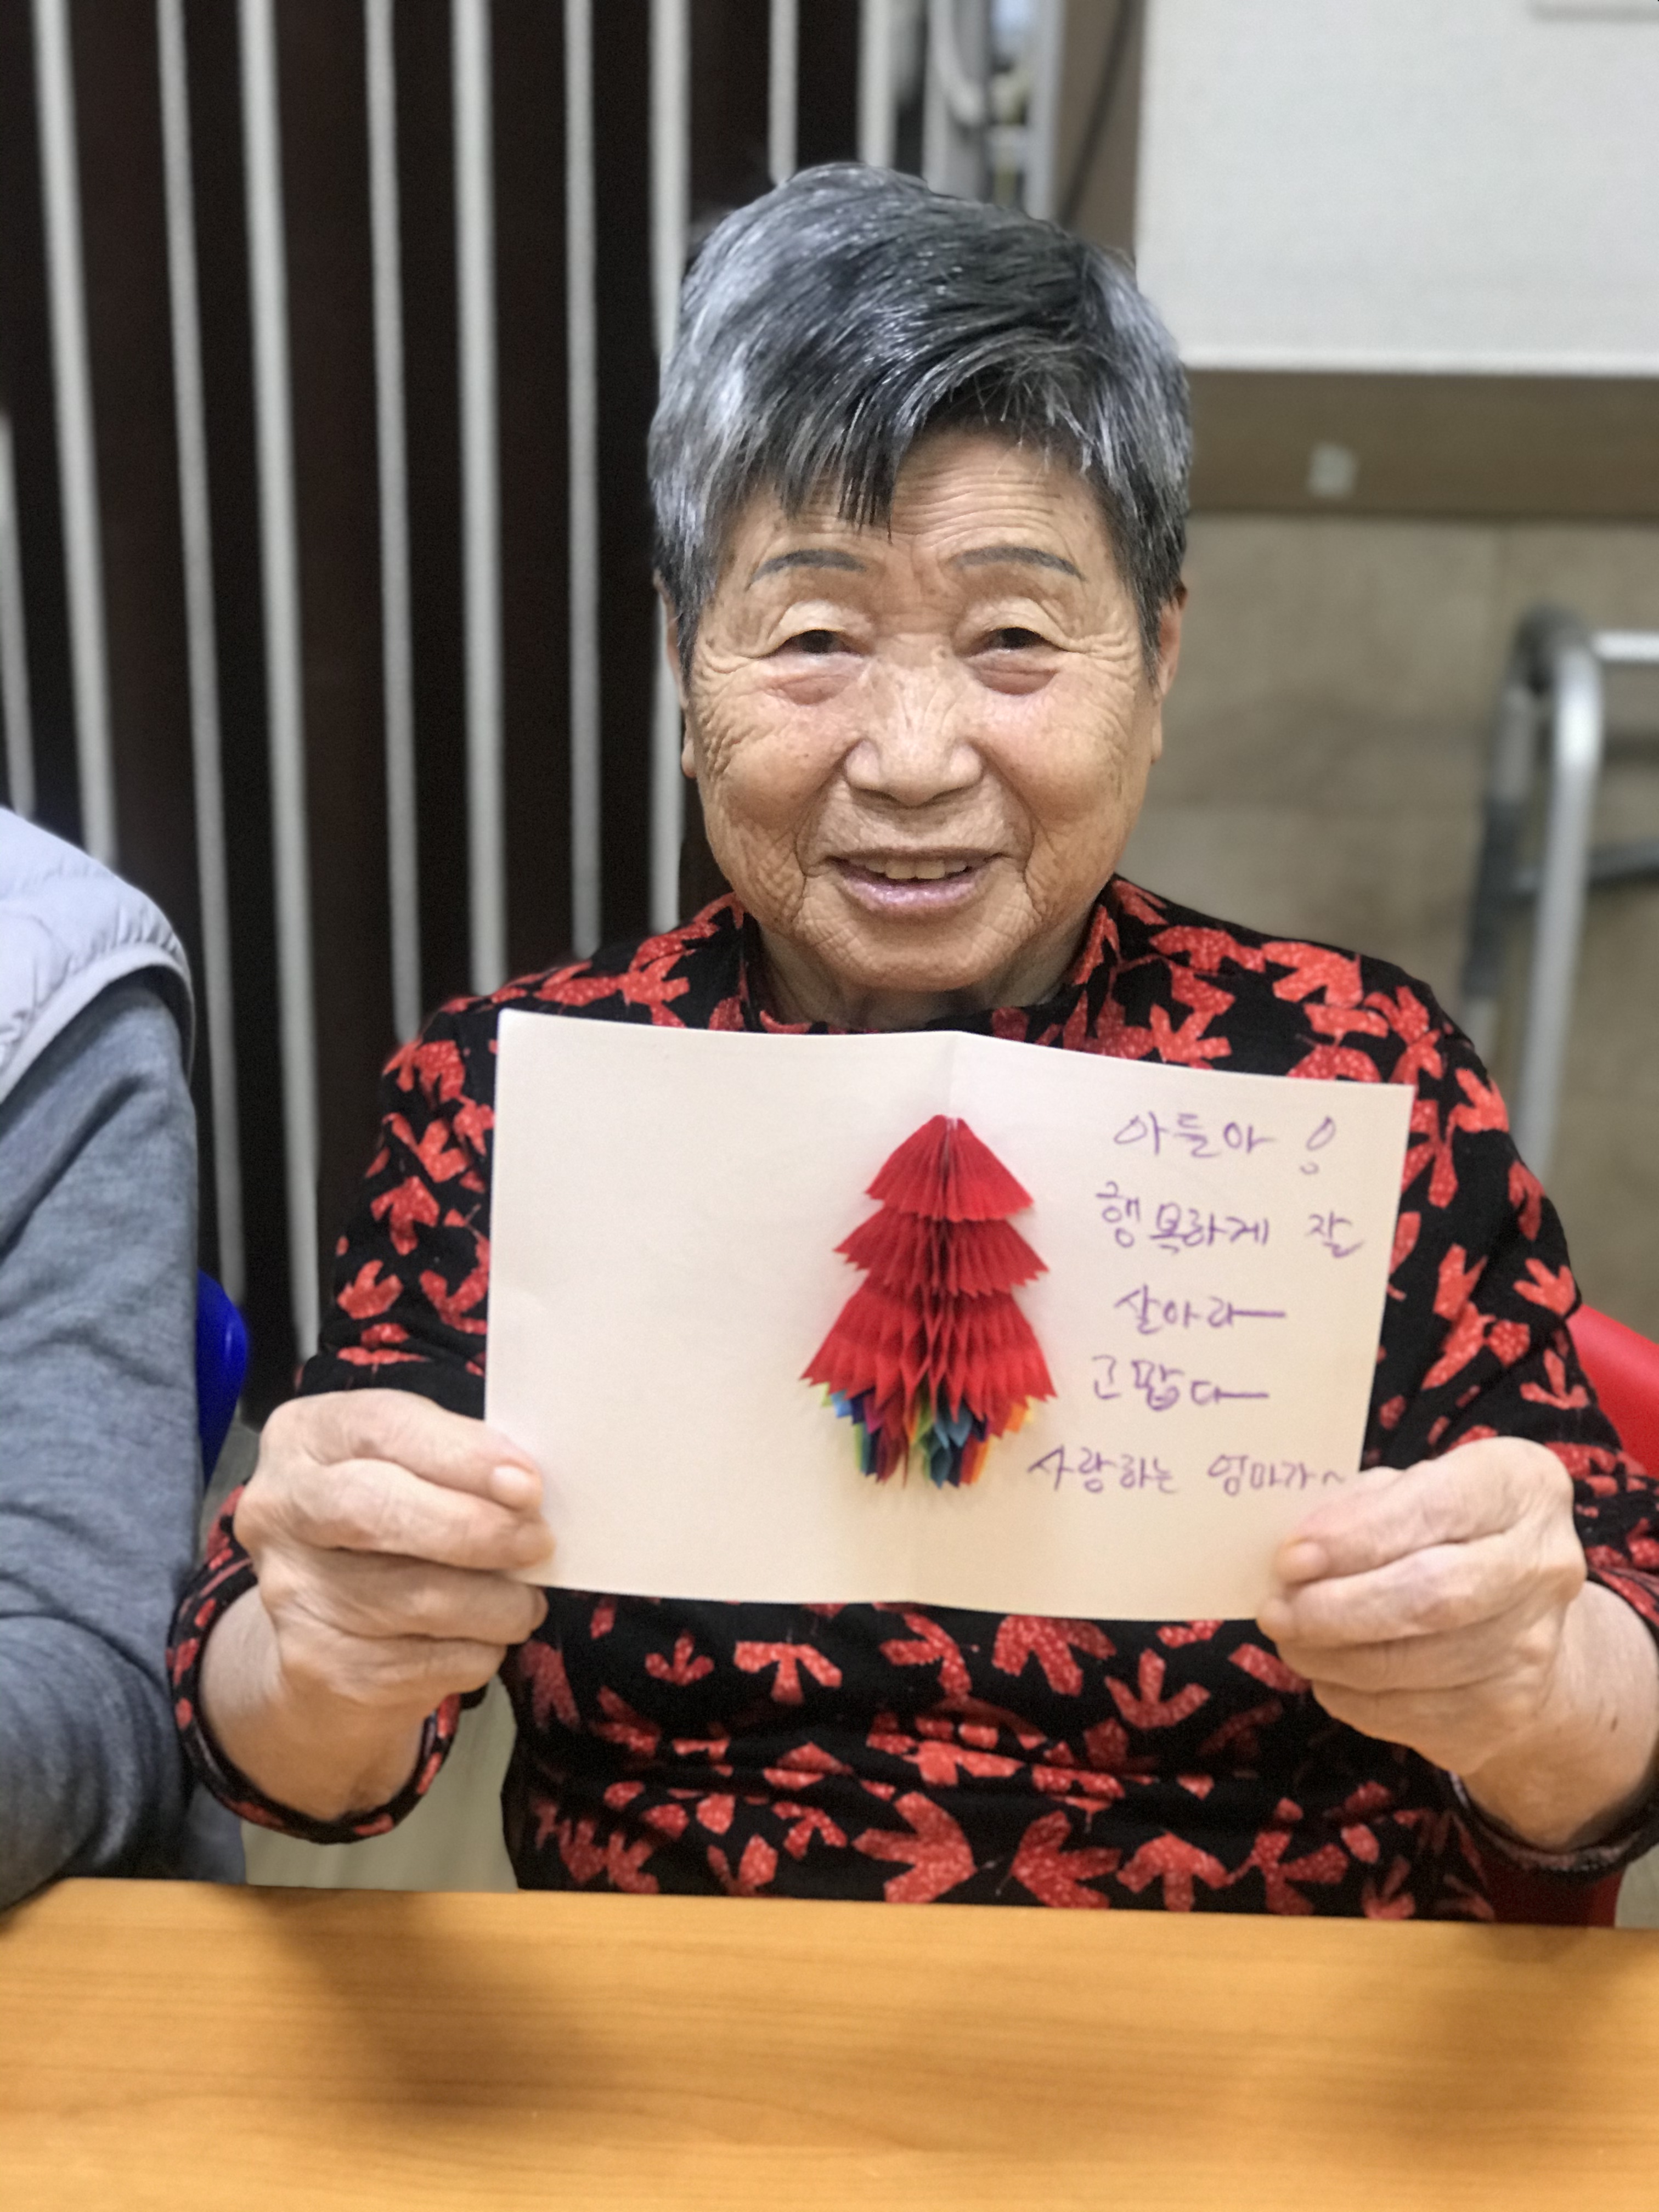 아들아!
행복하게 잘
살아라ㅡ
고맙다ㅡ
사랑하는 엄마가~